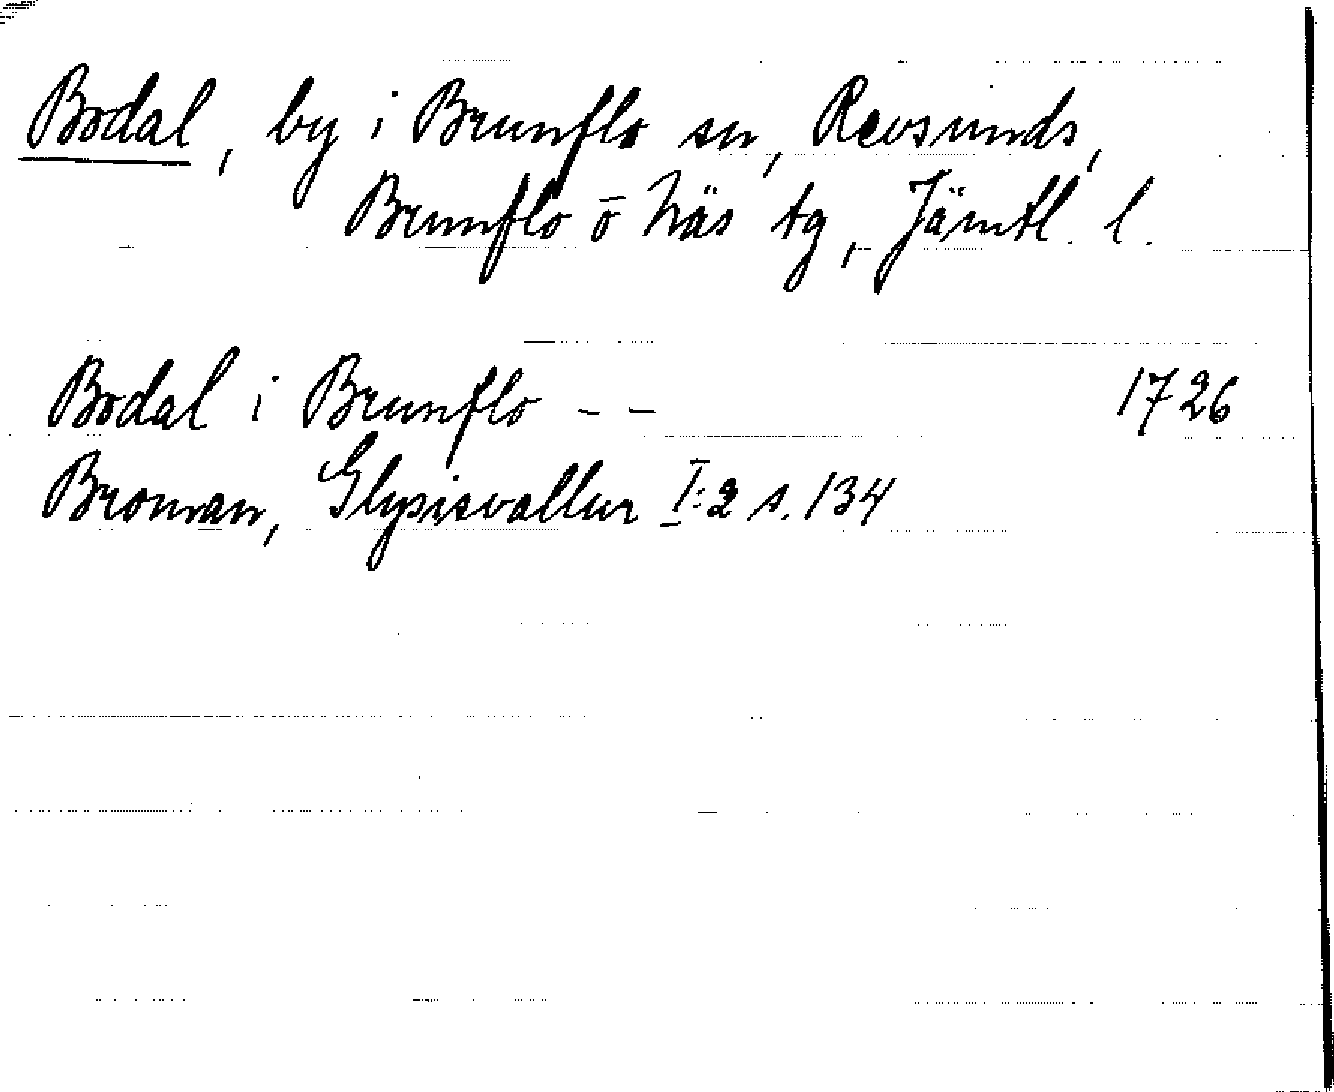 Bodal, by i Brunflo sn, Revsunds,
Brunflo o Näs tg, Jämtl. l.
Bodal i Brunflo - - 1726
Broman, Glysisvallur I:2 s. 134